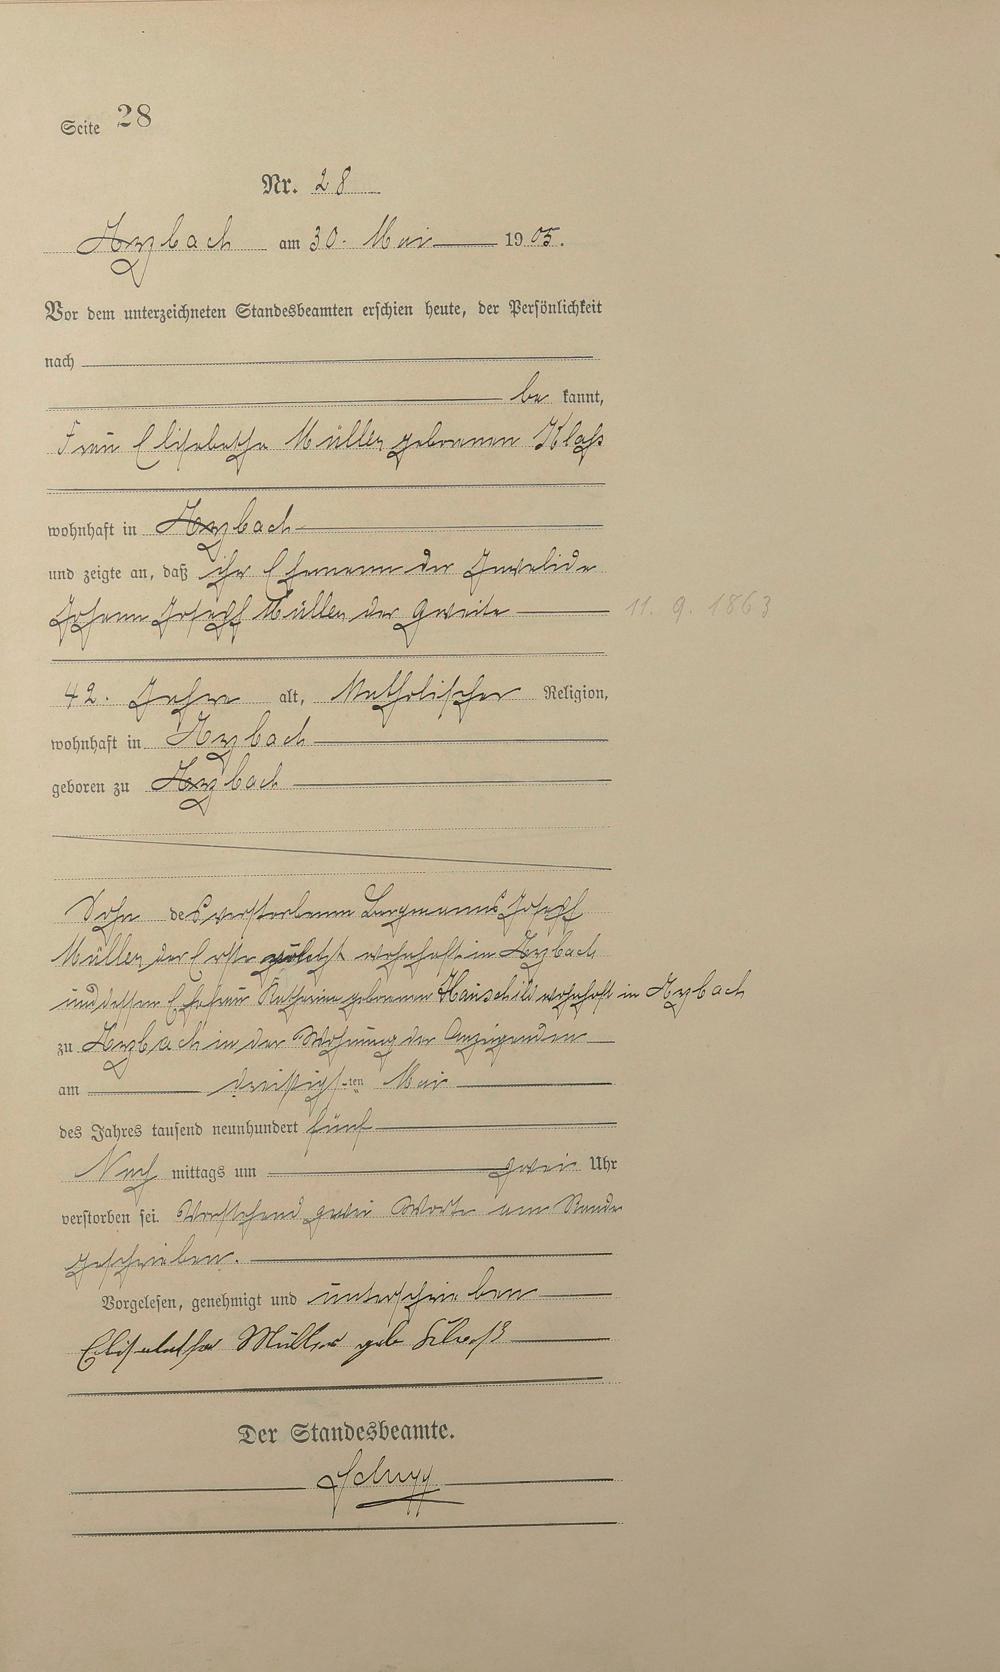 Seite 28
Nr. 28
Arzbach am 30. Mai 1905.
Vor dem unterzeichneten Standesbeamten erschien heute, der Persönlichkeit
nach
be kannt,
Frau Elisabetha Müller geborenen Klaß
wohnhaft in Arzbach
und zeigte an, daß ihr Ehemann der Invalide
Johann Joseph Müller der Zweite
11. 9. 1863
42. Jahre alt, Katholischer Religion,
wohnhaft in Arzbach
geboren zu Arzbach
Sohn des verstorbenen Bergmanns Joseph
Müller der Erste zuletzt wohnhaft in Arzbach
und dessen Ehefrau Katharina geborenen Hauschild wohnhaft in Arzbach
zu Arzbach in der Wohnung der Anzeigenden
am dreißigsten Mai
des Jahres tausend neunhundert fünf
Nach mittags um zwei Uhr
verstorben sei. Vorstehend zwei Worte am Rande
geschrieben.
Vorgelesen, genehmigt und unterschrieben
Elisabetha Müller geb Klaß
Der Standesbeamte.